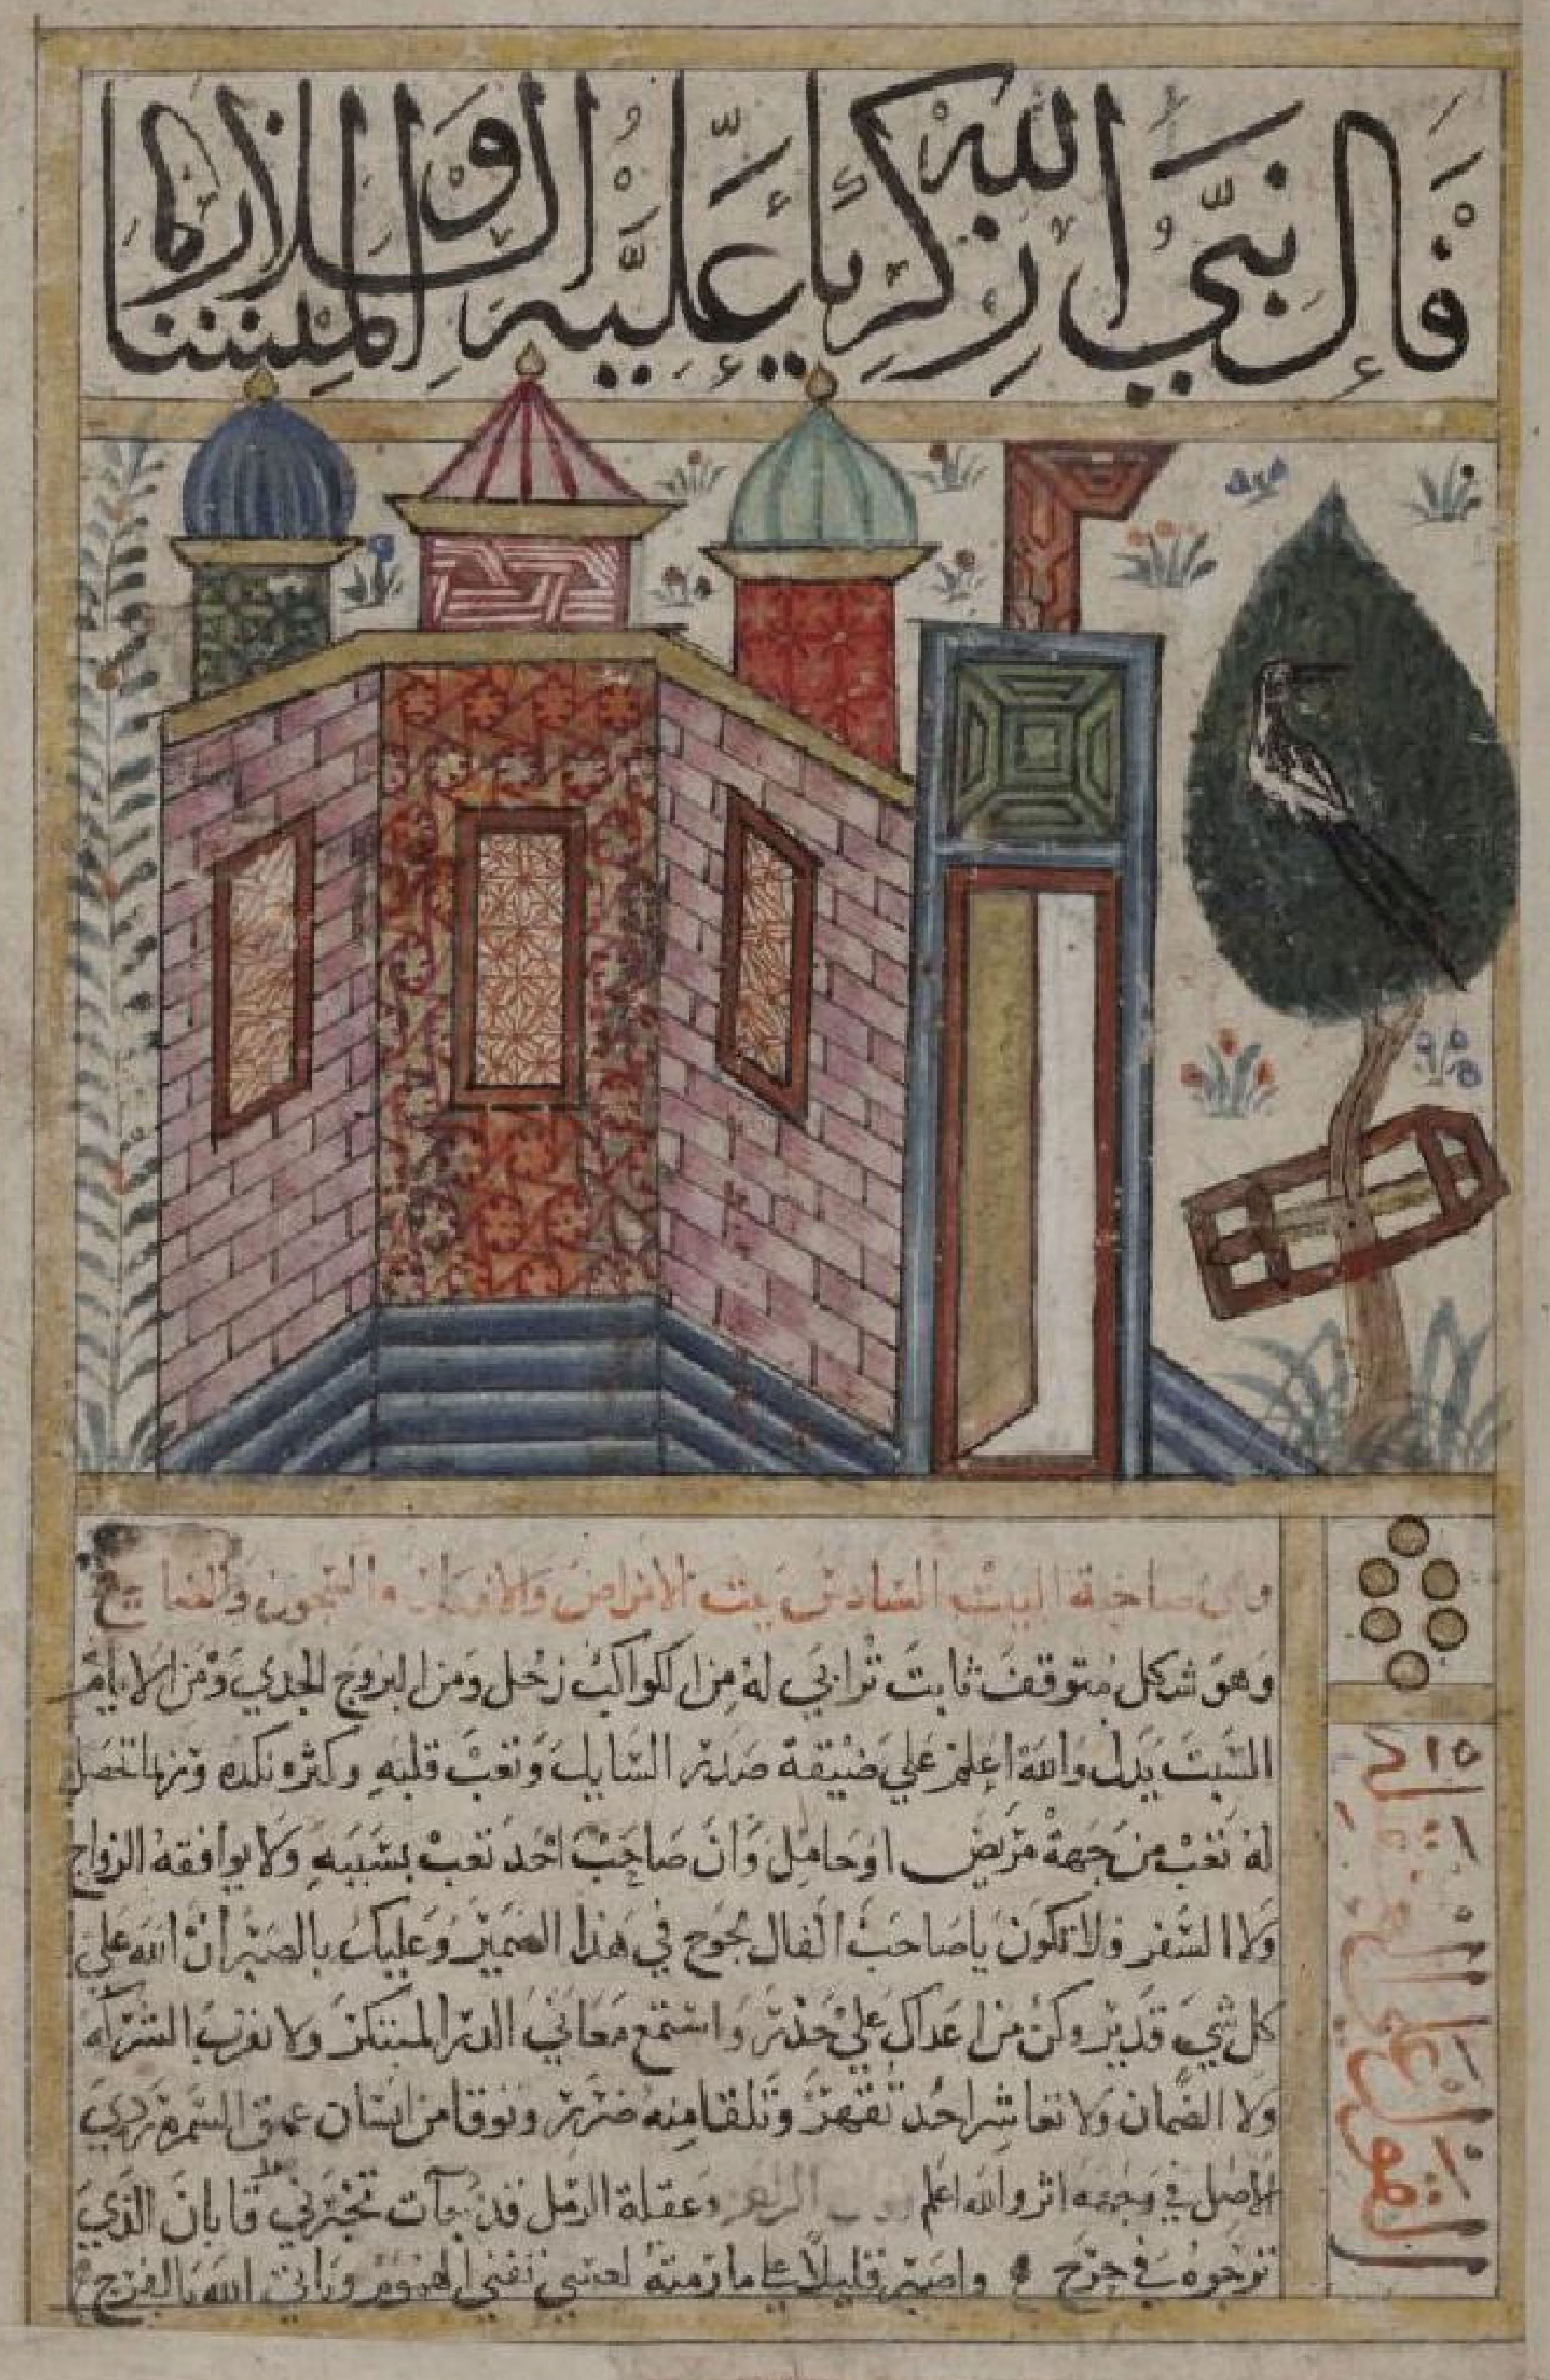 فَال نبيّ الله زكريا عليه الصلاة والسلام
صاحبة البيت السادس بيت الامراض والسجون
وهو شكل متوقف ثابت ترابي له من الكواكب زحل ومن البروج الجدي ومن الايام
السبت يدل والله اعلم علي ضيقة صدر السايل وتعب قلبه وكثره نكده وربما تحصل
له تعب من جهة مريض او حامل وان صاحب احد تعب بسببه ولا يوافقه الزواج
ولا السفر ولا تكون يا صاحب الفال لجوج في هذا الضمير وعليك بالصبر ان الله علي
كل شي قدير وكن من اعداك علي حذر واستمع معاني الدر ولا تقرب الشراكه
ولا الضمان ولا تعاشر احد تقهر وتلقا منه ضرر وتوقا من انسان السمره ردي
الاصل في وجهه اثر والله اعلم وعقلة الرمل قد جات تخبرني بان الذي
ترجوه في حرج واصبر قليلا علي ما رمته لعسي الهموم وياتي الله بالفرج
القول علي